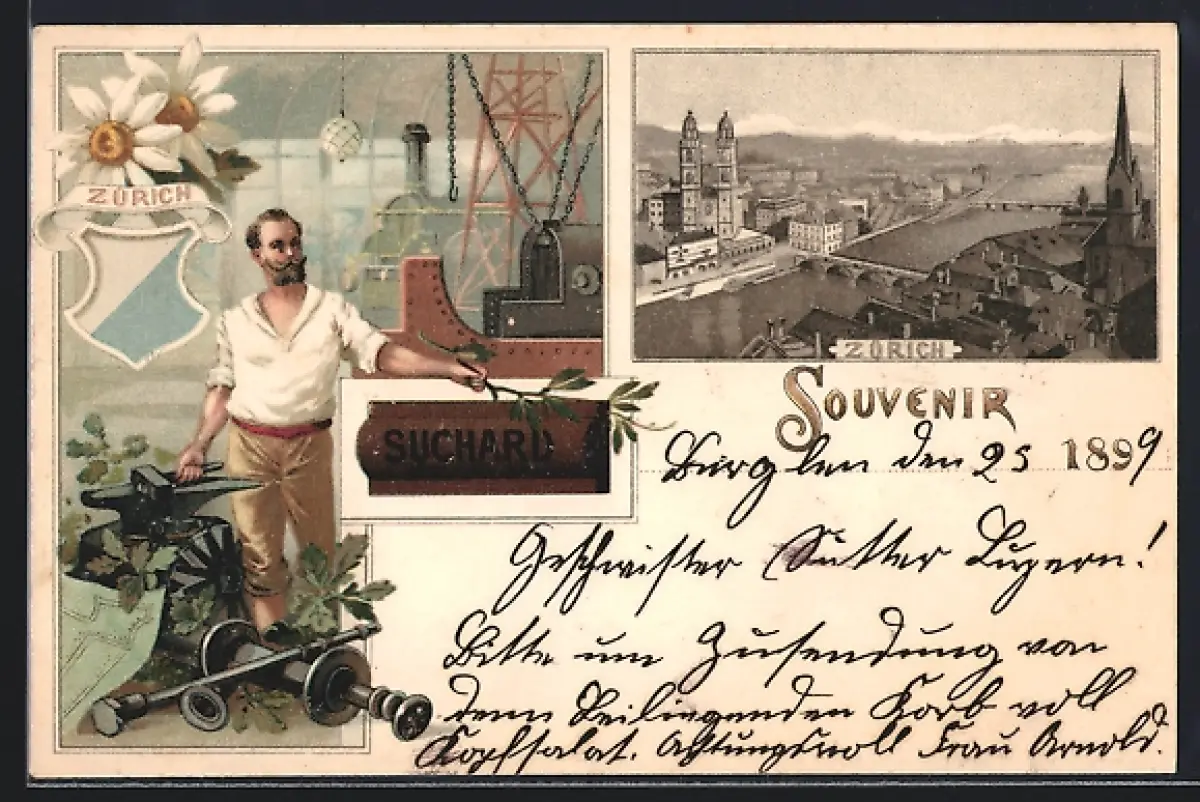 ZÜRICH
SUCHARD
ZÜRICH
SOUVENIR
Bürglen den 25 1899
Geschwister Sutter Luzern!
Bitte um Zusendung von
denn Beiliegenden Korb voll
Kopfsalat. Achtungsvoll Frau Arnold.